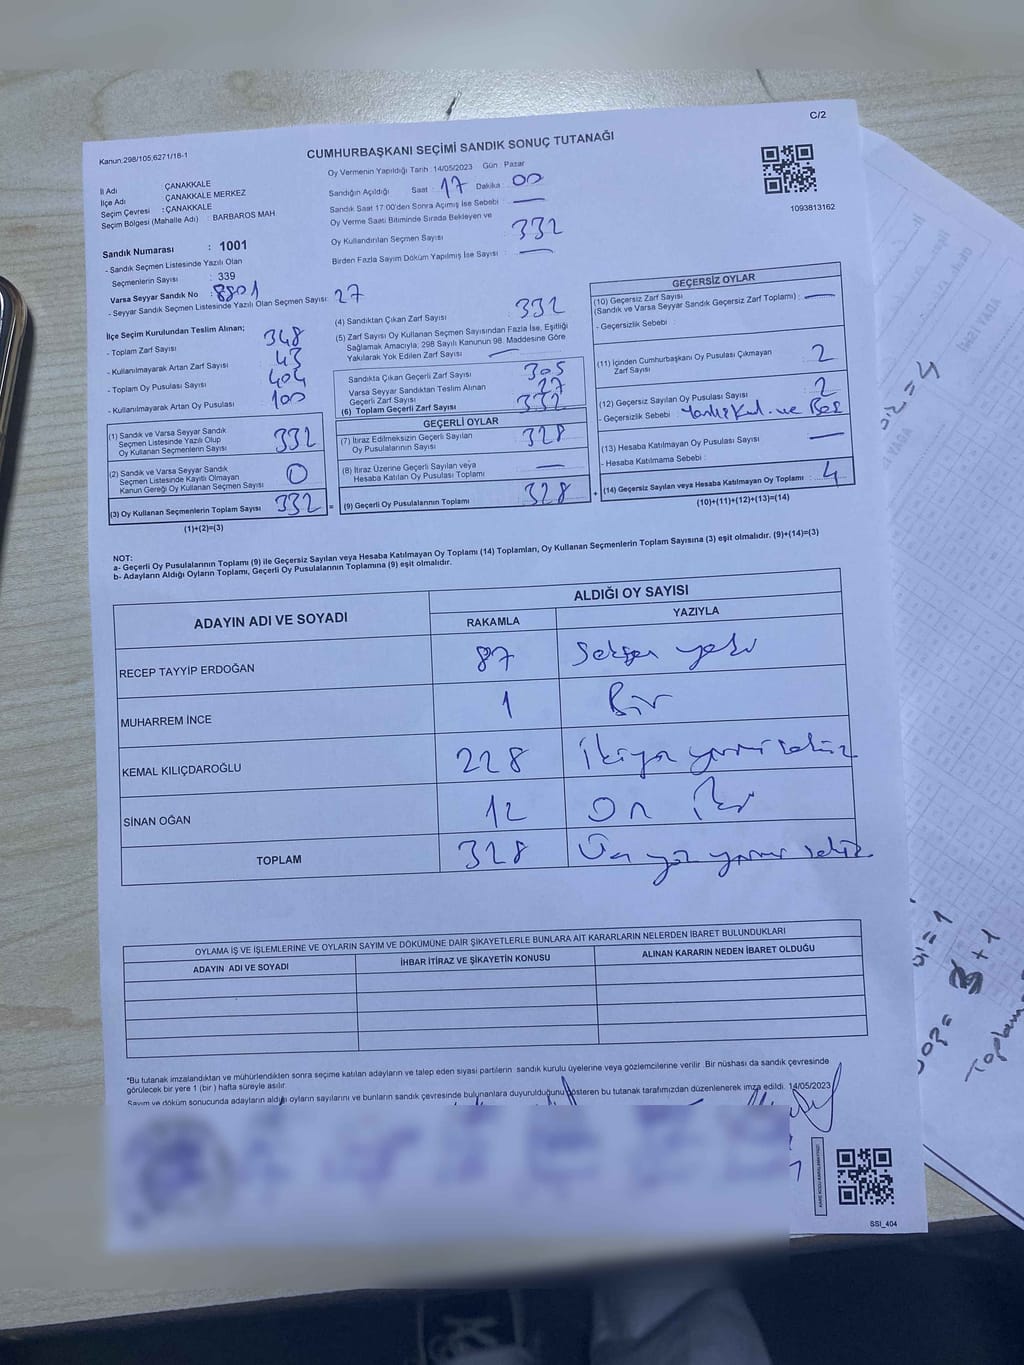 C/2
Kanun:298/105;6271/18-1
CUMHURBAŞKANI SEÇİMİ SANDIK SONUÇ TUTANAĞI
İl Adı : ÇANAKKALE
İlçe Adı : ÇANAKKALE MERKEZ
Seçim Çevresi : ÇANAKKALE
Seçim Bölgesi (Mahalle Adı) : BARBAROS MAH
Sandık Numarası : 1001
- Sandık Seçmen Listesinde Yazılı Olan
Seçmenlerin Sayısı : 339
Varsa Seyyar Sandık No : 8801
- Seyyar Sandık Seçmen Listesinde Yazılı Olan Seçmen Sayısı: 27
Oy Vermenin Yapıldığı Tarih : 14/05/2023 Gün : Pazar
Sandığın Açıldığı Saat : 17 Dakika : 00
Sandık Saat 17:00'den Sonra Açımış İse Sebebi : —
Oy Verme Saati Bitiminde Sırada Bekleyen ve
Oy Kullandırılan Seçmen Sayısı : 332
Birden Fazla Sayım Döküm Yapılmış İse Sayısı : —
1093813162
İlçe Seçim Kurulundan Teslim Alınan;
- Toplam Zarf Sayısı : 348
- Kullanılmayarak Artan Zarf Sayısı : 43
- Toplam Oy Pusulası Sayısı : 404
- Kullanılmayarak Artan Oy Pusulası : 100
(1) Sandık ve Varsa Seyyar Sandık
Seçmen Listesinde Yazılı Olup
Oy Kullanan Seçmenlerin Sayısı : 332
(2) Sandık ve Varsa Seyyar Sandık
Seçmen Listesinde Kayıtlı Olmayan
Kanun Gereği Oy Kullanan Seçmen Sayısı : 0
(3) Oy Kullanan Seçmenlerin Toplam Sayısı : 332
(1)+(2)=(3)
(4) Sandıktan Çıkan Zarf Sayısı : 332
(5) Zarf Sayısı Oy Kullanan Seçmen Sayısından Fazla İse, Eşitliği
Sağlamak Amacıyla; 298 Sayılı Kanunun 98. Maddesine Göre
Yakılarak Yok Edilen Zarf Sayısı : —
Sandıkta Çıkan Geçerli Zarf Sayısı : 305
Varsa Seyyar Sandıktan Teslim Alınan
Geçerli Zarf Sayısı : 27
(6) Toplam Geçerli Zarf Sayısı : 332
GEÇERLİ OYLAR
(7) İtiraz Edilmeksizin Geçerli Sayılan
Oy Pusulalarının Sayısı : 328
(8) İtiraz Üzerine Geçerli Sayılan veya
Hesaba Katılan Oy Pusulası Toplamı : —
= (9) Geçerli Oy Pusulalarının Toplamı : 328
GEÇERSİZ OYLAR
(10) Geçersiz Zarf Sayısı
(Sandık ve Varsa Seyyar Sandık Geçersiz Zarf Toplamı) : —
- Geçersizlik Sebebi :
(11) İçinden Cumhurbaşkanı Oy Pusulası Çıkmayan
Zarf Sayısı : 2
(12) Geçersiz Sayılan Oy Pusulası Sayısı : 2
- Geçersizlik Sebebi : Kul. ve Boş
(13) Hesaba Katılmayan Oy Pusulası Sayısı : —
- Hesaba Katılmama Sebebi :
+ (14) Geçersiz Sayılan veya Hesaba Katılmayan Oy Toplamı : 4
(10)+(11)+(12)+(13)=(14)
NOT:
a- Geçerli Oy Pusulalarının Toplamı (9) ile Geçersiz Sayılan veya Hesaba Katılmayan Oy Toplamı (14) Toplamları, Oy Kullanan Seçmenlerin Toplam Sayısına (3) eşit olmalıdır. (9)+(14)=(3)
b- Adayların Aldığı Oyların Toplamı, Geçerli Oy Pusulalarının Toplamına (9) eşit olmalıdır.
ADAYIN ADI VE SOYADI ALDIĞI OY SAYISI
RAKAMLA YAZIYLA
RECEP TAYYİP ERDOĞAN 87 Seksen yedi
MUHARREM İNCE 1 Bir
KEMAL KILIÇDAROĞLU 228 İkiyüz yirmi sekiz
SİNAN OĞAN 12 On iki
TOPLAM 328 Üç yüz yirmi sekiz
OYLAMA İŞ VE İŞLEMLERİNE VE OYLARIN SAYIM VE DÖKÜMÜNE DAİR ŞİKAYETLERLE BUNLARA AİT KARARLARIN NELERDEN İBARET BULUNDUKLARI
ADAYIN ADI VE SOYADI İHBAR İTİRAZ VE ŞİKAYETİN KONUSU ALINAN KARARIN NEDEN İBARET OLDUĞU
*Bu tutanak imzalandıktan ve mühürlendikten sonra seçime katılan adayların ve talep eden siyasi partilerin sandık kurulu üyelerine veya gözlemcilerine verilir. Bir nüshası da sandık çevresinde
görülecek bir yere 1 (bir ) hafta süreyle asılır.
Sayım ve döküm sonucunda adayların aldığı oyların sayılarını ve bunların sandık çevresinde bulunanlara duyurulduğunu gösteren bu tutanak tarafımızdan düzenlenerek imza edildi. 14/05/2023
SSI_404
= 4
= 1
3+1
Toplam